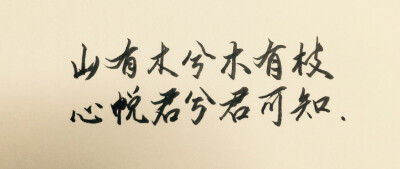 山有木兮木有枝
心悦君兮君可知.